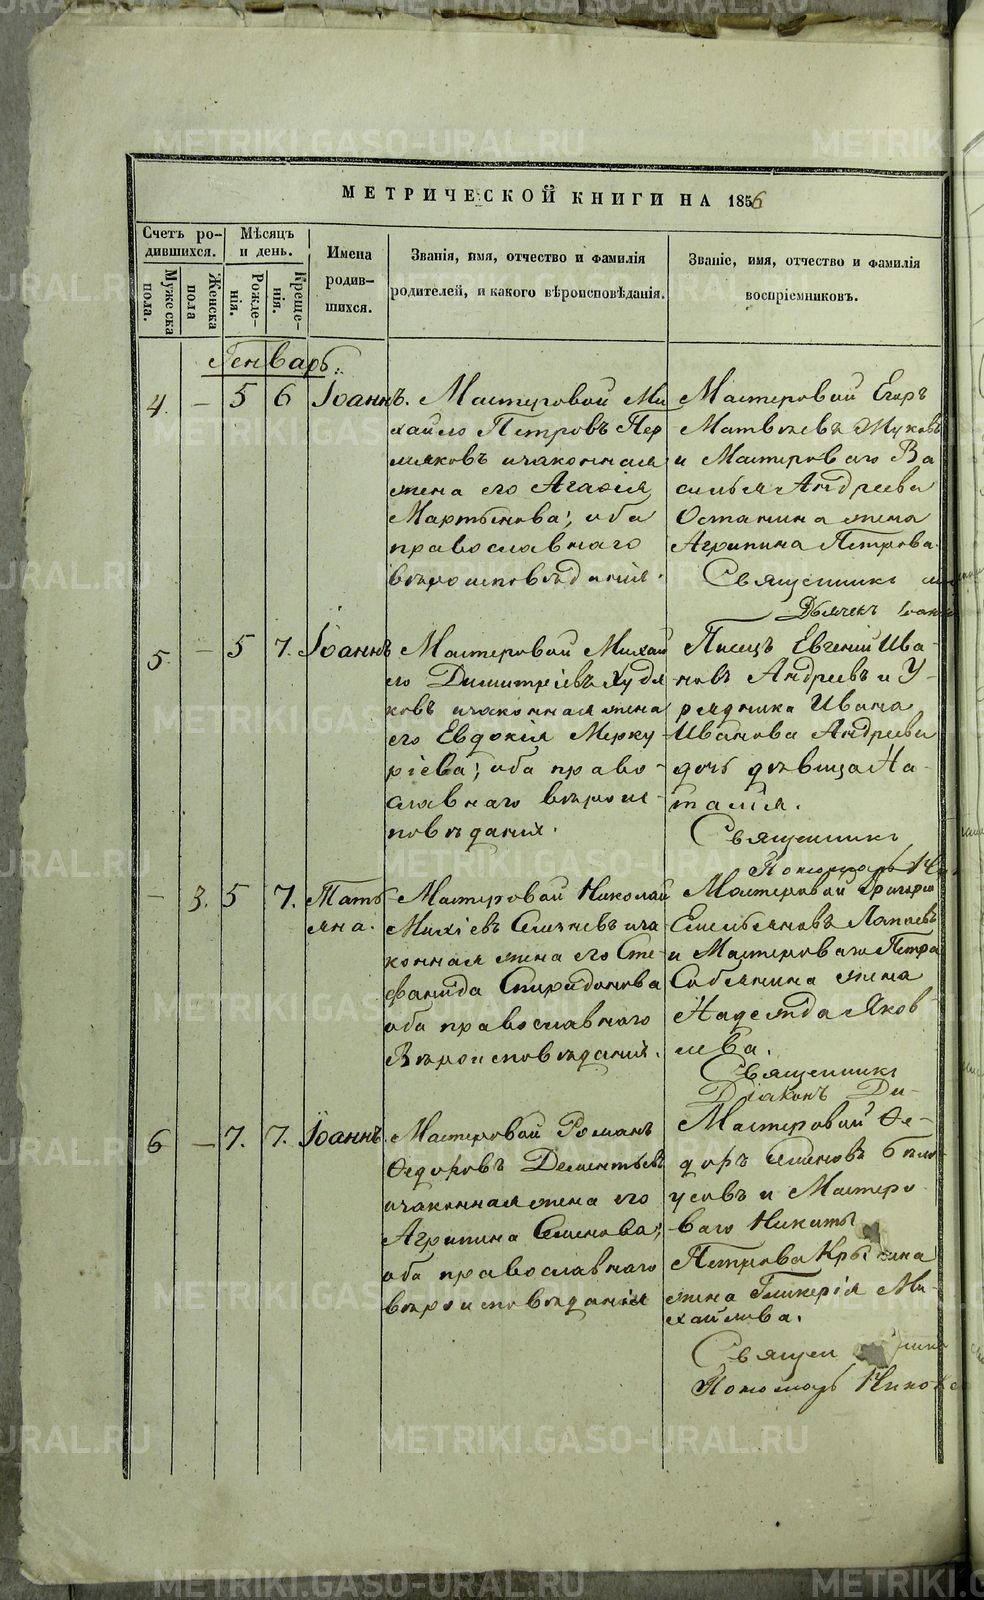 МЕТРИЧЕСКОЙ КНИГИ НА 1856
Счетъ ро-
дившихся.
Мѣсяцъ
и день.
Имена
родив-
шихся.
Званія, имя, отчество и фамилія
родителей, и какого вѣроисповѣданія.
Званіе, имя, отчество и фамилія
воспріемниковъ.
Мужеска
пола.
Женска
пола
Рожде-
нія.
Креще-
нія.
Генварь.
4. — 5 6 Іоаннъ.
Мастеровой Ми
хайло Петровъ Пер
мяковъ и законная
жена его Агафія
Мартынова; оба
православнаго
вѣроисповѣданія.
Мастеровой Егоръ
Матвѣевъ Жуковъ
и Мастероваго Ва
силья Андреева
Останина жена
Агрипина Петрова.
Священникъ
Дьячекъ Іоан
5. — 5 7. Іоаннъ
Мастеровой Михай
ло Димитріевъ Худя
ковъ и законная жена
его Евдокія Мерку
ріева; оба право-
славнаго вѣроис-
повѣданія.
Писецъ Евгеній Ива-
новъ Андреевъ и У-
рядника Ивана
Иванова Андреева
дочь дѣвица На-
талія.
Священникъ
Пономарь Ни
— 3. 5 7. Тать
яна.
Мастеровой Николай
Михіевъ и за
конная жена его Сте-
фанида Спиридонова
оба православнаго
Вѣроисповѣданія.
Мастеровой Григорій
Емельяновъ
и Мастероваго Петра
Собянина жена
Надежда Яков
лева.
Священникъ
Діаконъ Ди-
6 — 7. 7. Іоаннъ.
Мастеровой Романъ
Ѳедоровъ Дементьевъ
и законная жена его
Агрипина Семенова;
оба православнаго
вѣроисповѣданія
Мастеровой Ѳе-
доръ Семеновъ Бѣло
усовъ и Мастеро-
ваго Никиты
Петрова
жена Гликерія Ми-
хайлова.
Священ
Пономарь Никол
METRIKI.GASO-URAL.RU